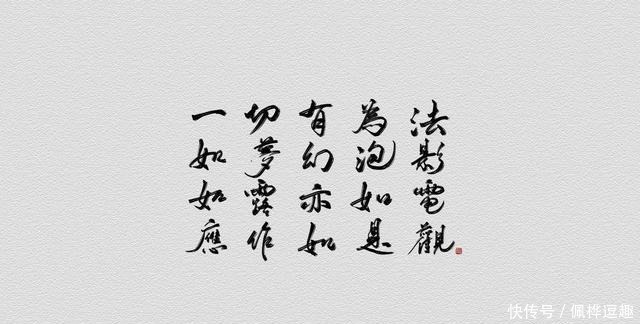 一切有為法
如夢幻泡影
如露亦如電
應作如是觀
快传号/佩桦逗趣